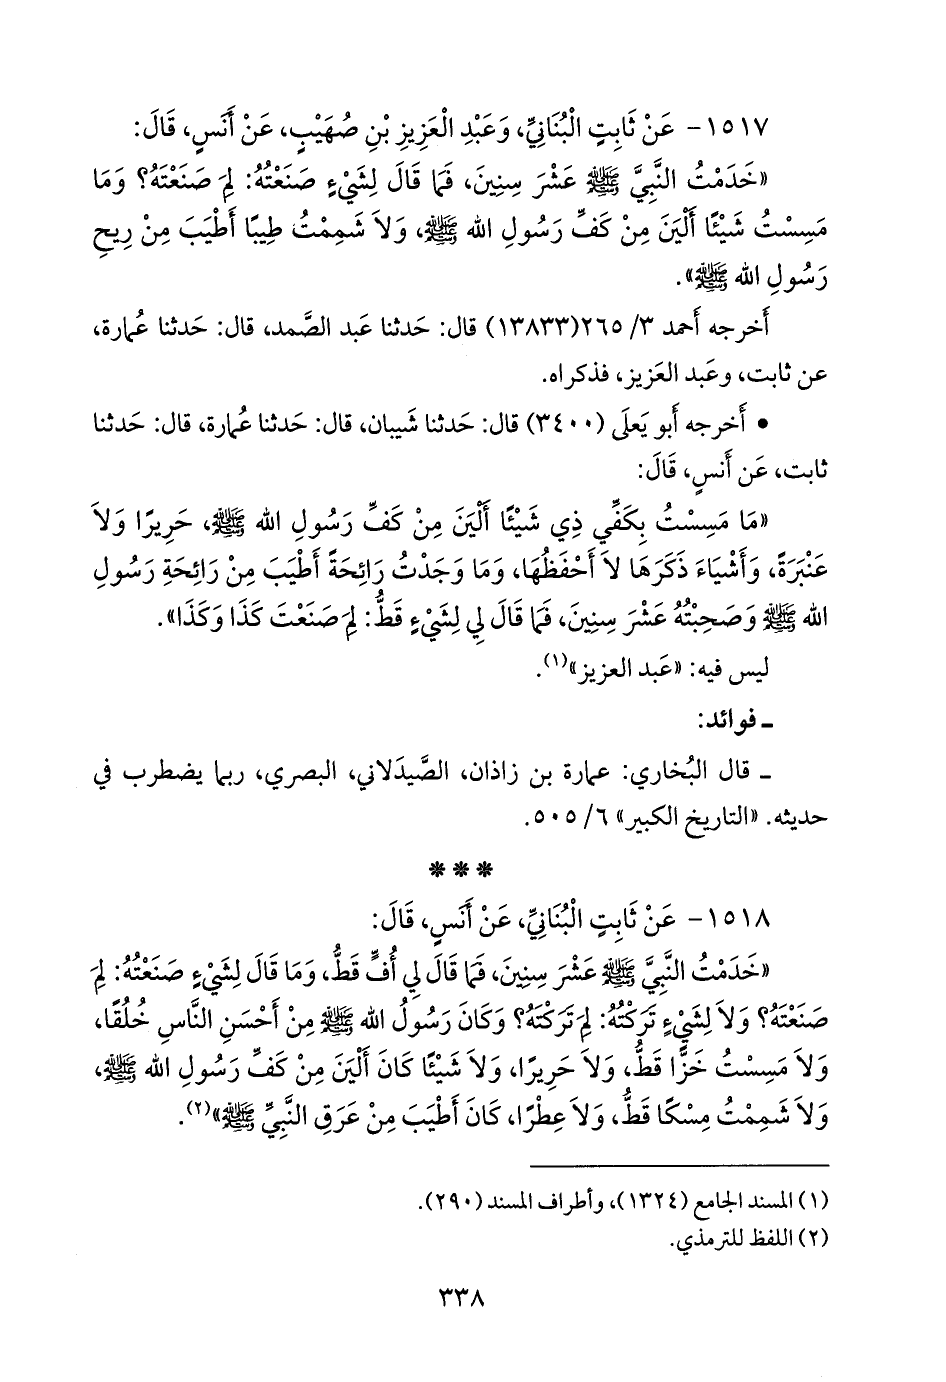 ١٥١٧- عَنْ ثَابِتٍ الْبُنَانِيِّ، وَعَبْدِ الْعَزِيزِ بْنِ صُهَيْبٍ، عَنْ أَنَسٍ، قَالَ:
«خَدَمْتُ النَّبِيَّ ﷺ عَشْرَ سِنِينَ، فَمَا قَالَ لِشَيْءٍ صَنَعْتُهُ: لِمَ صَنَعْتَهُ؟ وَمَا
مَسِسْتُ شَيْئًا أَلْيَنَ مِنْ كَفِّ رَسُولِ الله ﷺ، وَلاَ شَمِمْتُ طِيبًا أَطْيَبَ مِنْ رِيحِ
رَسُولِ الله ﷺ».
أَخرجه أَحمد ٣/ ٢٦٥(١٣٨٣٣) قال: حَدثنا عَبد الصَّمد، قال: حَدثنا عُمارة،
عن ثابت، وعَبد العَزيز، فذكراه.
• أَخرجه أَبو يَعلَى (٣٤٠٠) قال: حَدثنا شَيبان، قال: حَدثنا عُمارة، قال: حَدثنا
ثابت، عَن أَنسٍ، قَالَ:
«مَا مَسِسْتُ بِكَفِّي ذِي شَيْئًا أَلْيَنَ مِنْ كَفِّ رَسُولِ الله ﷺ، حَرِيرًا وَلاَ
عَنْبَرَةً، وَأَشْيَاءَ ذَكَرَهَا لاَ أَحْفَظُهَا، وَمَا وَجَدْتُ رَائِحَةً أَطْيَبَ مِنْ رَائِحَةِ رَسُولِ
الله ﷺ وَصَحِبْتُهُ عَشْرَ سِنِينَ، فَمَا قَالَ لِي لِشَيْءٍ قَطُّ: لِمَ صَنَعْتَ كَذَا وَكَذَا».
ليس فيه: «عَبد العزيز»(١).
ـ فوائد:
ـ قال البُخاري: عمارة بن زاذان، الصَّيدَلاني، البصري، ربما يضطرب في
حديثه. «التاريخ الكبير» ٦/ ٥٠٥.
* * *
١٥١٨- عَنْ ثَابِتٍ الْبُنَانِيِّ، عَنْ أَنَسٍ، قَالَ:
«خَدَمْتُ النَّبِيَّ ﷺ عَشْرَ سِنِينَ، فَمَا قَالَ لِي أُفٍّ قَطُّ، وَمَا قَالَ لِشَيْءٍ صَنَعْتُهُ: لِمَ
صَنَعْتَهُ؟ وَلاَ لِشَيْءٍ تَرَكْتُهُ: لِمَ تَرَكْتَهُ؟ وَكَانَ رَسُولُ الله ﷺ مِنْ أَحْسَنِ النَّاسِ خُلُقًا،
وَلاَ مَسِسْتُ خَزًّا قَطُّ، وَلاَ حَرِيرًا، وَلاَ شَيْئًا كَانَ أَلْيَنَ مِنْ كَفِّ رَسُولِ الله ﷺ،
وَلاَ شَمِمْتُ مِسْكًا قَطُّ، وَلاَ عِطْرًا، كَانَ أَطْيَبَ مِنْ عَرَقِ النَّبِيِّ ﷺ»(٢).
(١) المسند الجامع (١٣٢٤)، وأطراف المسند (٢٩٠).
(٢) اللفظ للترمذي.
٣٣٨